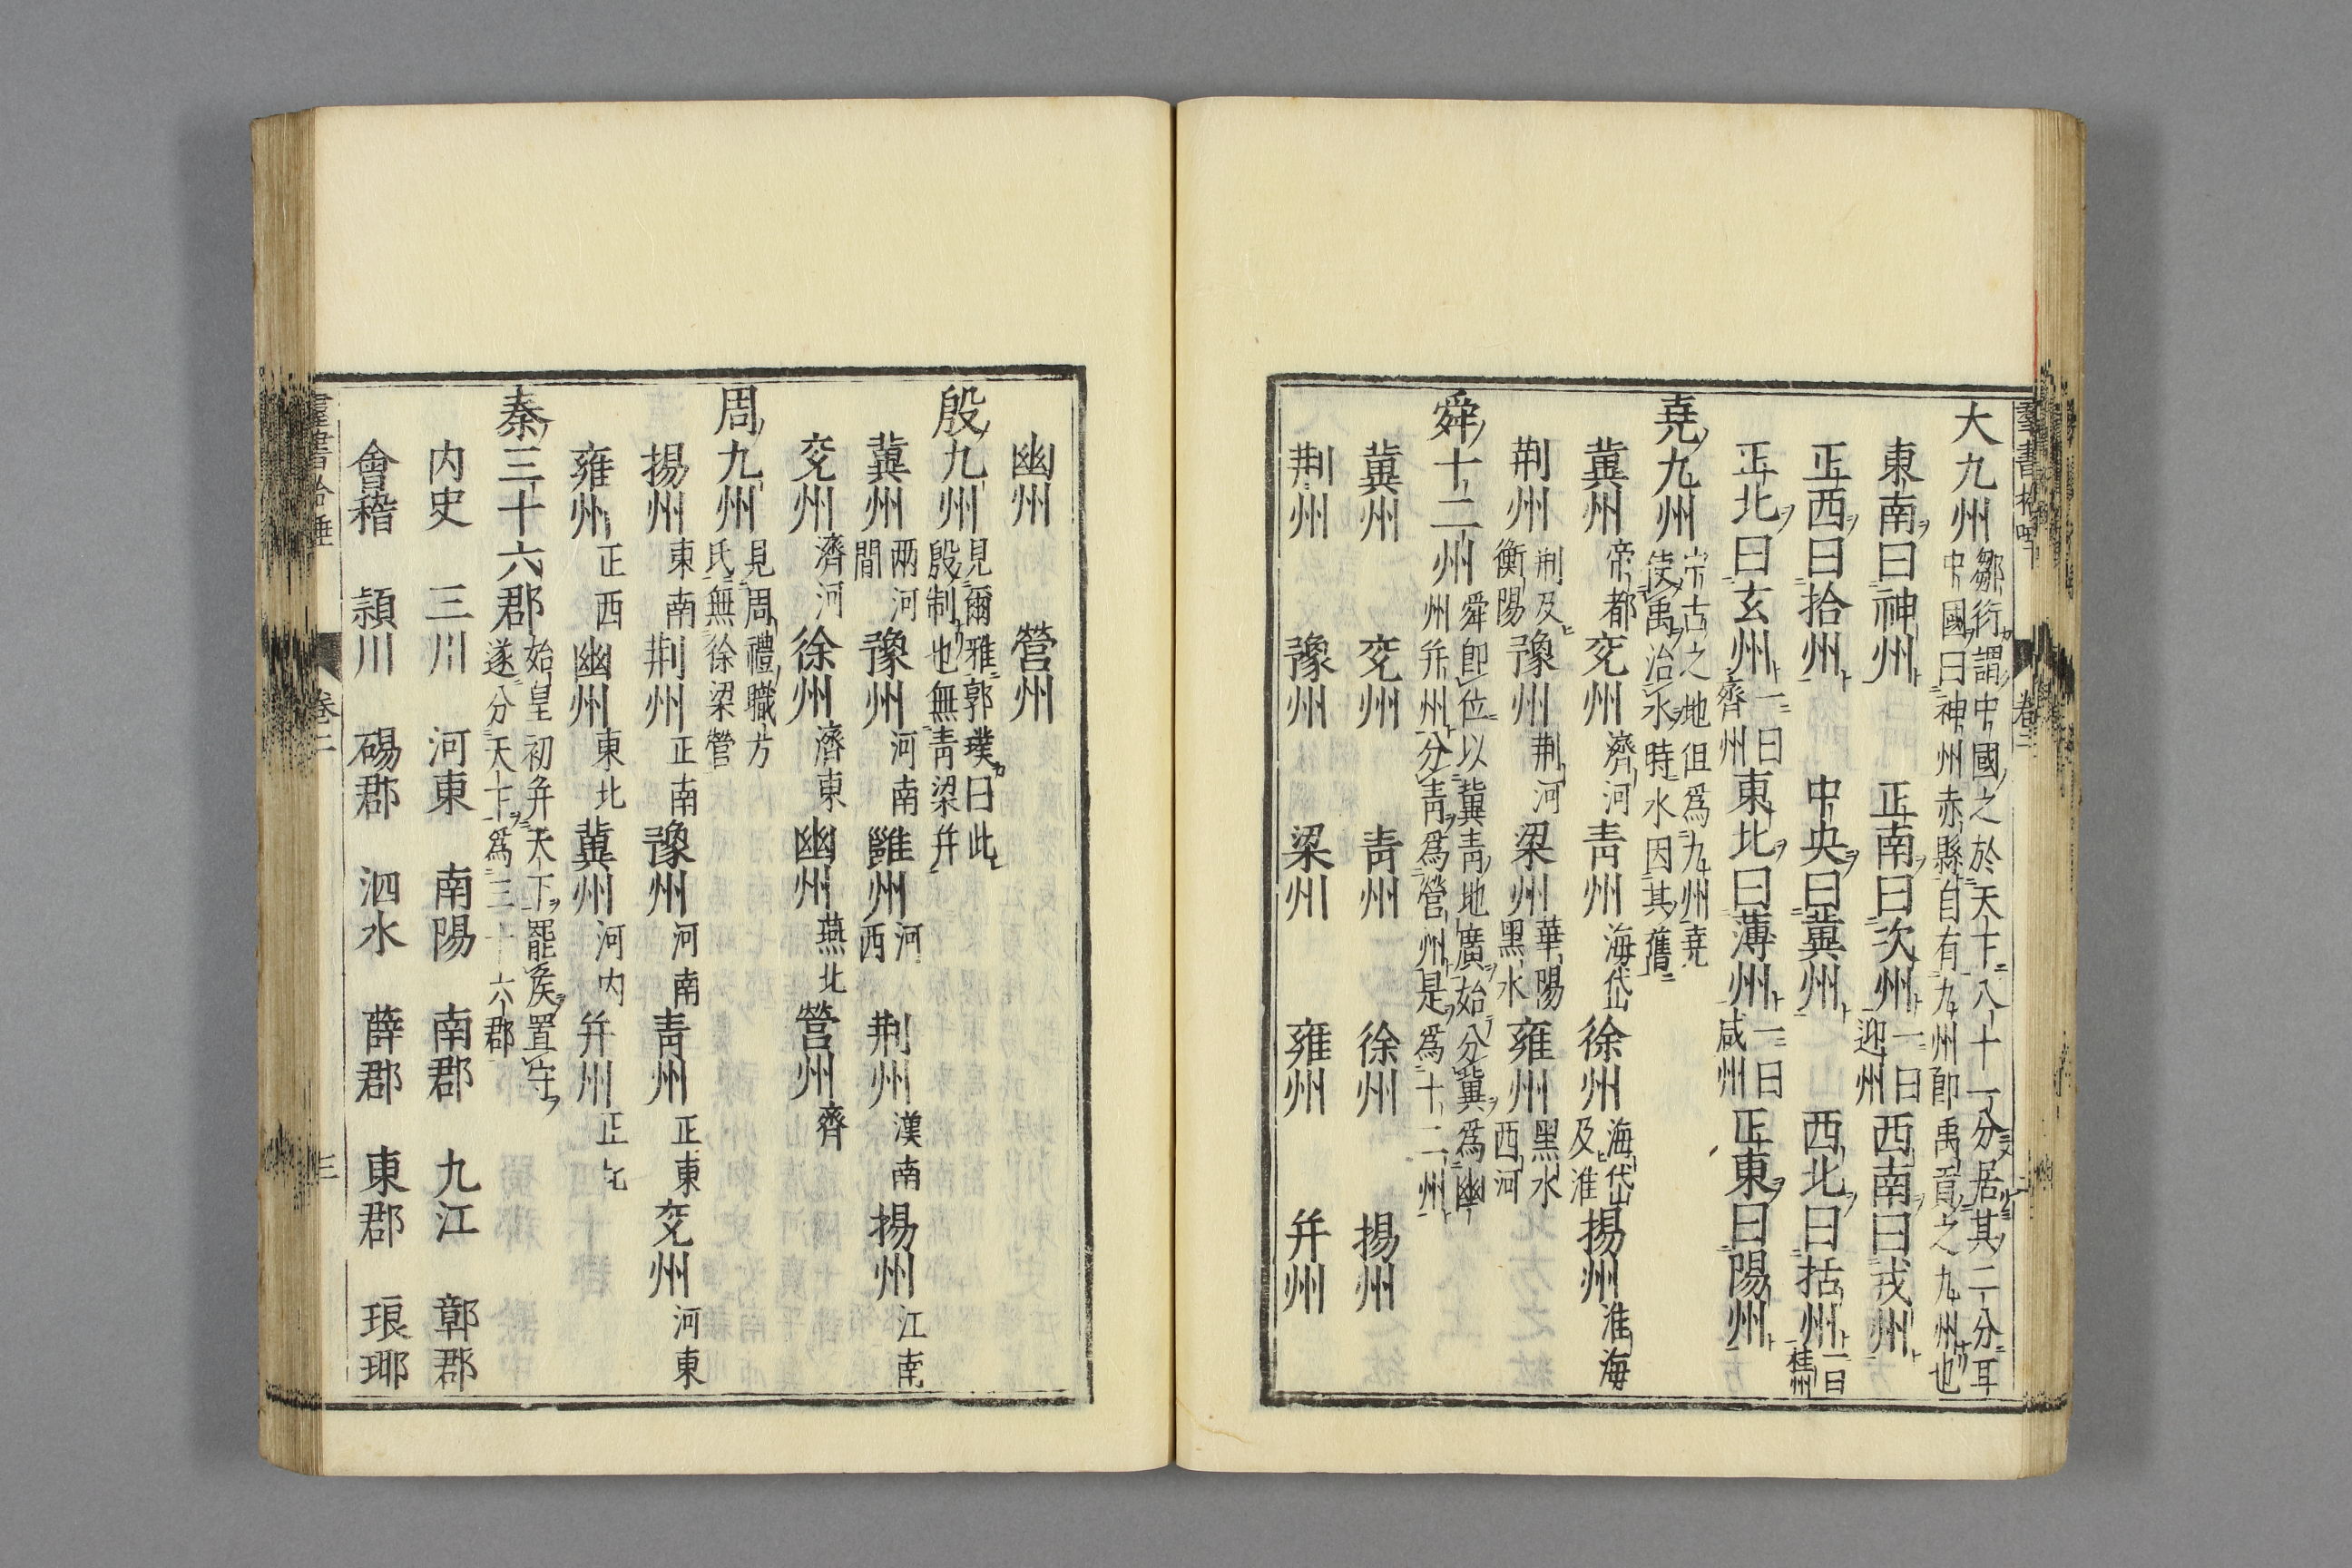 大九州 鄒衍謂中國之於天下八十一分居其一分耳
中國曰神州赤縣自有九州即禹貢之九州也
東南曰神州 正南曰次州 一曰
迎州 西南曰戎州
正西曰拾州 中央曰冀州 西北曰括州 一曰
桂州
正北曰玄州 一曰
齊州 東北曰薄州 一曰
咸州 正東曰陽州
堯九州 古之地但爲九州堯
使禹治水時水因其舊
冀州 帝都 兗州 濟河 青州 海岱 徐州 海岱
及淮 揚州 淮海
荆州 荆及
衡陽 豫州 荆河 梁州 華陽
黑水 雍州 黑水
西河
舜十二州 舜即位以冀青地廣始分冀爲幽
州并州分青爲營州是爲十二州
冀州 兗州 青州 徐州 揚州
荆州 豫州 梁州 雍州 并州
幽州 營州
殷九州 見爾雅郭璞曰此
殷制也無青梁并
冀州 兩河
間 豫州 河南 雝州 河
西 荆州 漢南 揚州 江南
兗州 濟河 徐州 濟東 幽州 燕北 營州 齊
周九州 見周禮職方
氏無徐梁營
揚州 東南 荆州 正南 豫州 河南 青州 正東 兗州 河東
雍州 正西 幽州 東北 冀州 河内 并州 正北
秦三十六郡 始皇初并天下罷矦置守
遂分天下爲三十六郡
内史 三川 河東 南陽 南郡 九江 鄣郡
會稽 潁川 碭郡 泗水 薛郡 東郡 琅琊
卷二 三